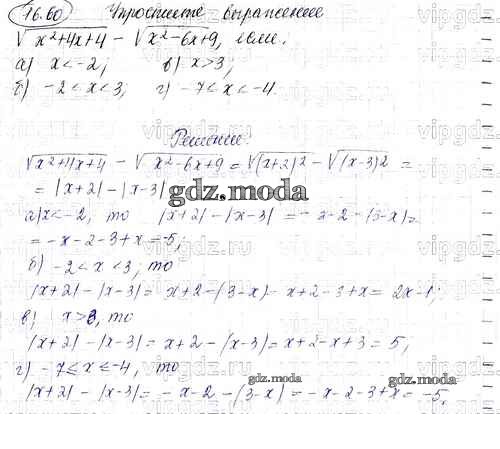 16.60) Упростите выражение
√x²+4x+4 − √x²−6x+9, если:
а) x<−2; в) x>3;
б) −2<x<3; г) −7<x<−4.
Решение:
√x²+4x+4 − √x²−6x+9 = √(x+2)² − √(x−3)² =
= |x+2| − |x−3|
gdz.moda
а) x<−2, то |x+2| − |x−3| = −x−2−(3−x)=
= −x−2−3+x=−5;
б) −2<x<3; то
|x+2| − |x−3| = x+2−(3−x)= x+2−3+x= 2x−1;
в) x>3, то
|x+2| − |x−3| = x+2−(x−3)=x+2−x+3 = 5;
г) −7≤x≤−4, то
gdz.moda
|x+2| − |x−3| = −x−2−(3−x)=−x−2−3+x=−5.
gdz.moda
vipgdz.ru